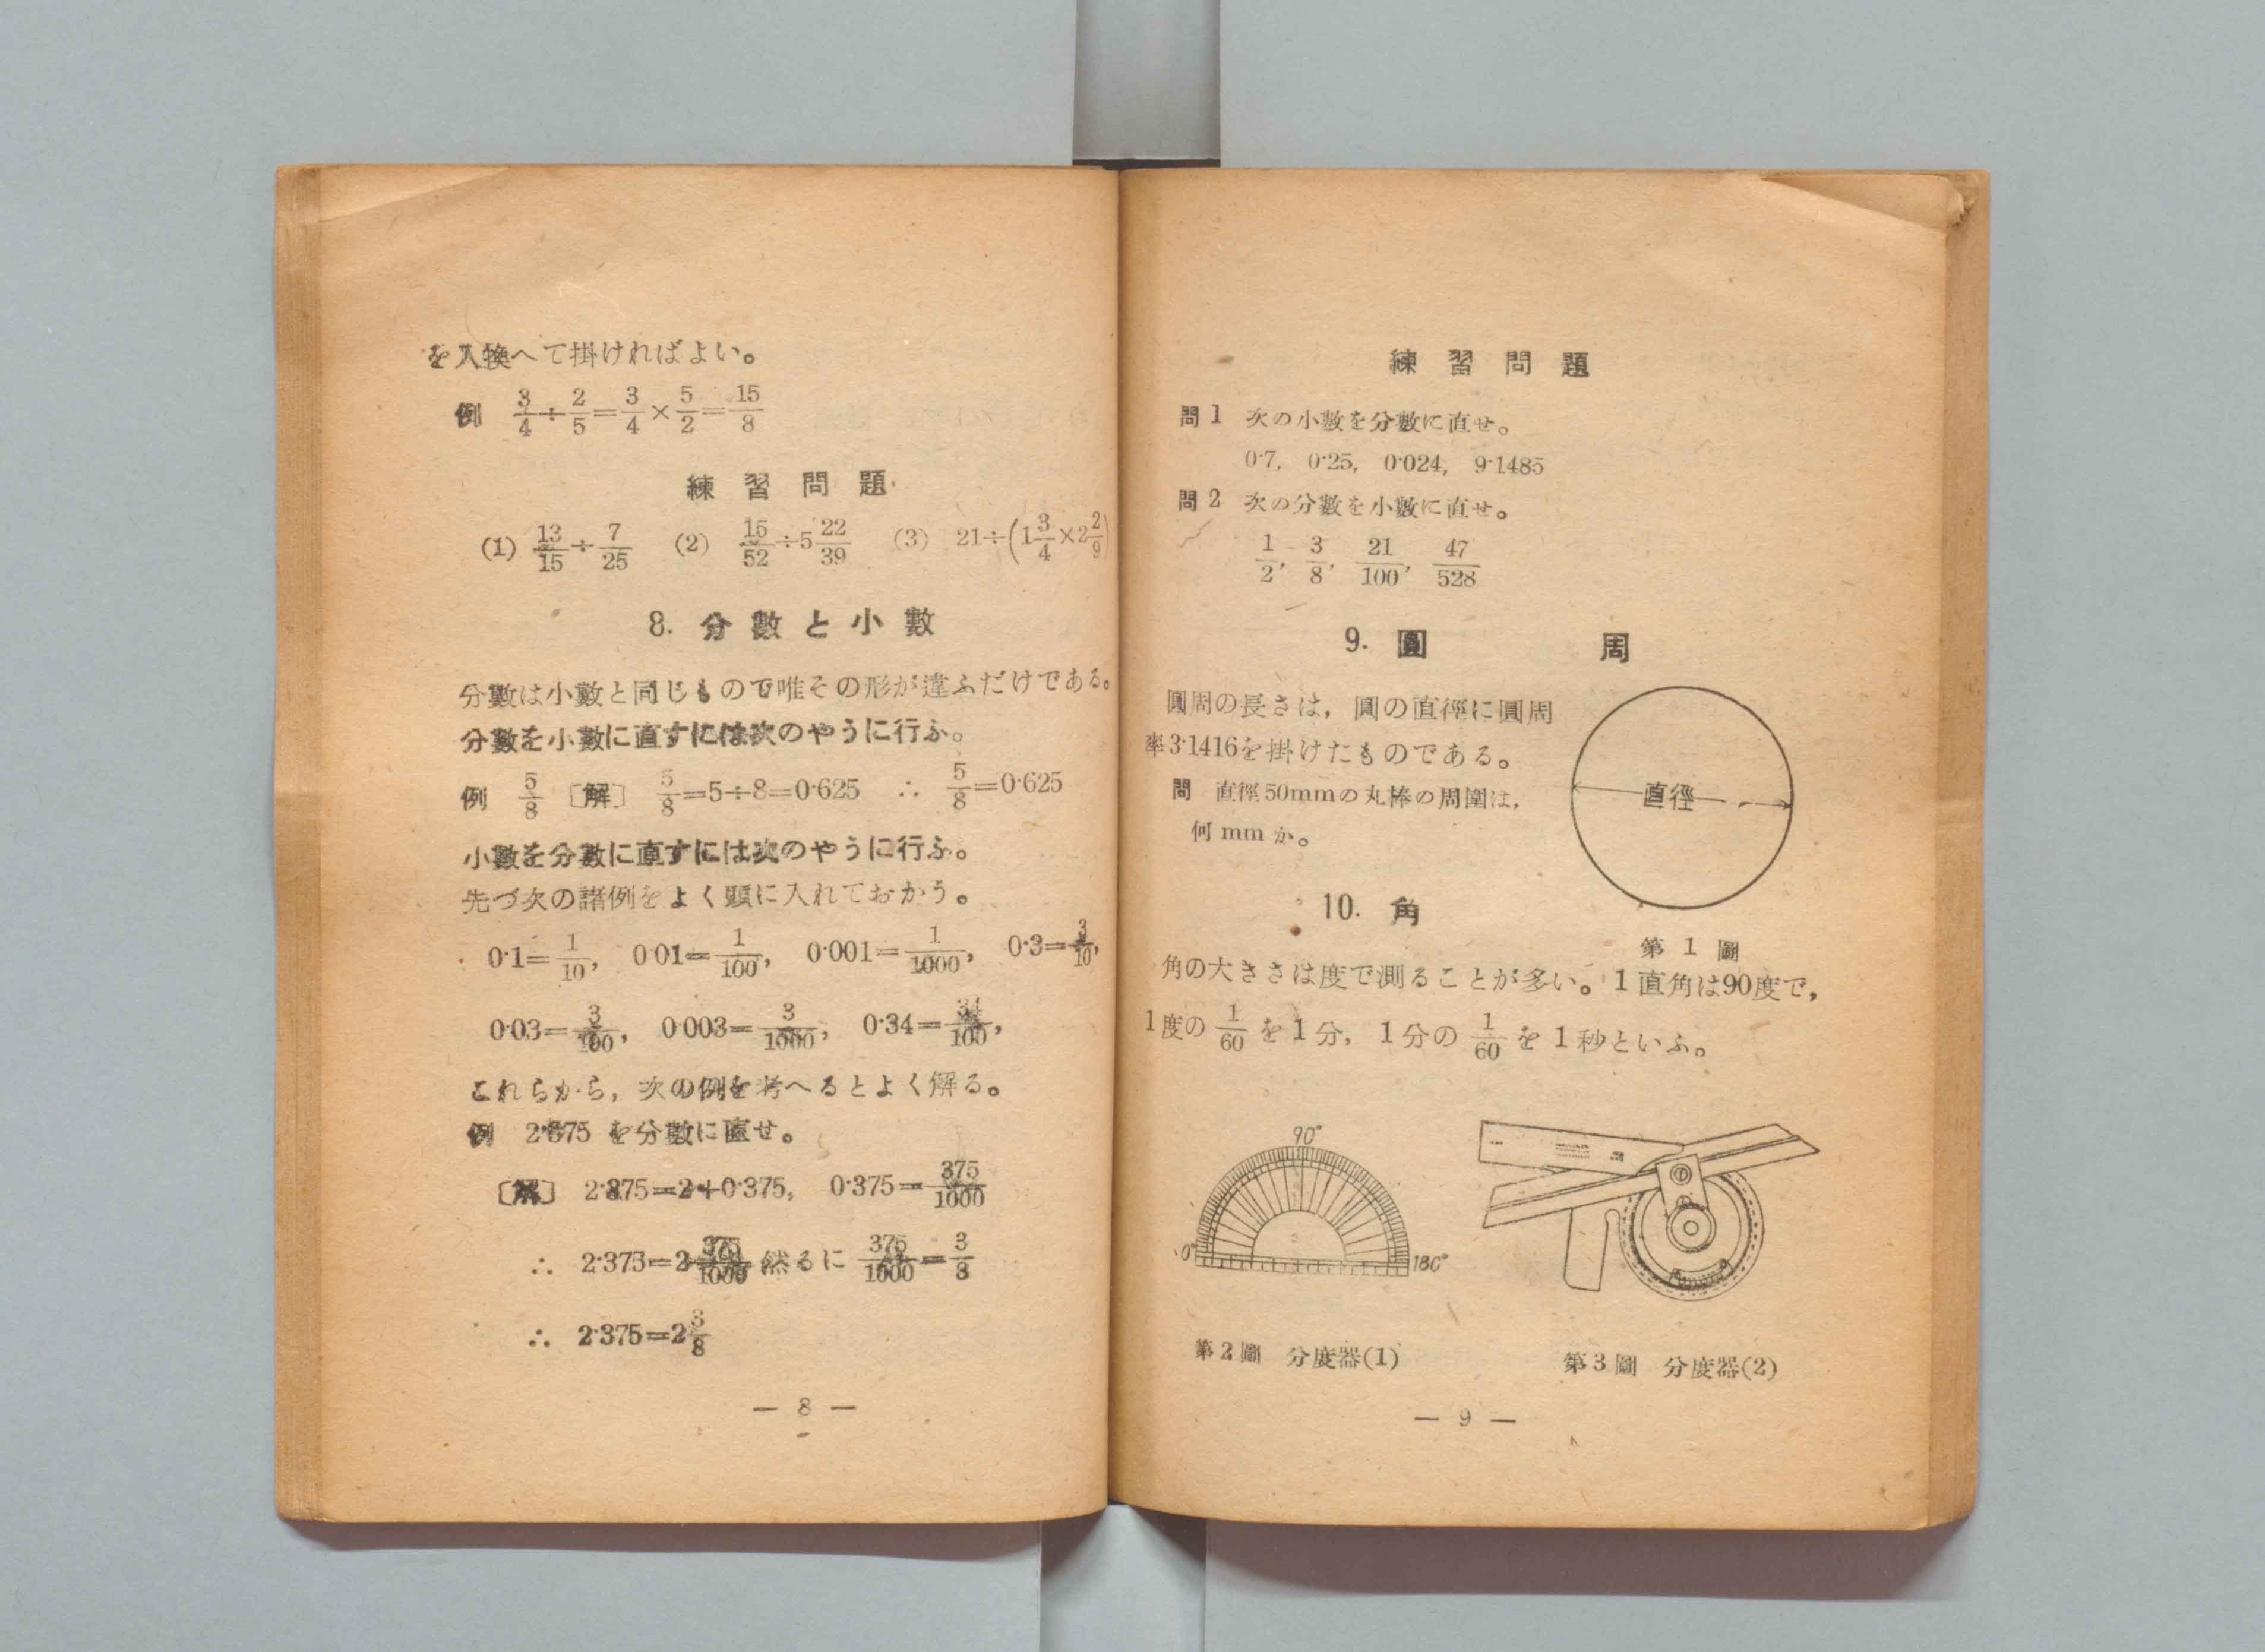 を入換へて掛ければよい。
例 3/4÷2/5=3/4×5/2=15/8
練習問題
(1) 13/15÷7/25 (2) 15/52÷5 22/39 (3) 21÷(1 3/4×2 2/9)
8. 分數と小數
分數は小數と同じもので唯その形が違ふだけである。
分數を小數に直すには次のやうに行ふ。
例 5/8 〔解〕 5/8=5÷8=0·625 ∴ 5/8=0·625
小數を分數に直すには次のやうに行ふ。
先づ次の諸例をよく頭に入れておかう。
0·1=1/10, 0·01=1/100, 0·001=1/1000, 0·3=3/10,
0·03=3/100, 0·003=3/1000, 0·34=34/100,
これらから,次の例を考へるとよく解る。
例 2·375 を分數に直せ。
〔解〕 2·375=2+0·375, 0·375=375/1000
∴ 2·375=2 375/1000 然るに 375/1000=3/8
∴ 2·375=2 3/8
— 8 —
練習問題
問1 次の小數を分數に直せ。
0·7, 0·25, 0·024, 9·1485
問2 次の分數を小數に直せ。
1/2, 3/8, 21/100, 47/528
9. 圓周
圓周の長さは,圓の直徑に圓周
率3·1416を掛けたものである。
問 直徑50mmの丸棒の周圍は,
何mmか。
直徑
第1圖
10. 角
角の大きさは度で測ることが多い。1直角は90度で,
1度の 1/60 を1分,1分の 1/60 を1秒といふ。
90°
0°
180°
第2圖 分度器(1)
第3圖 分度器(2)
— 9 —